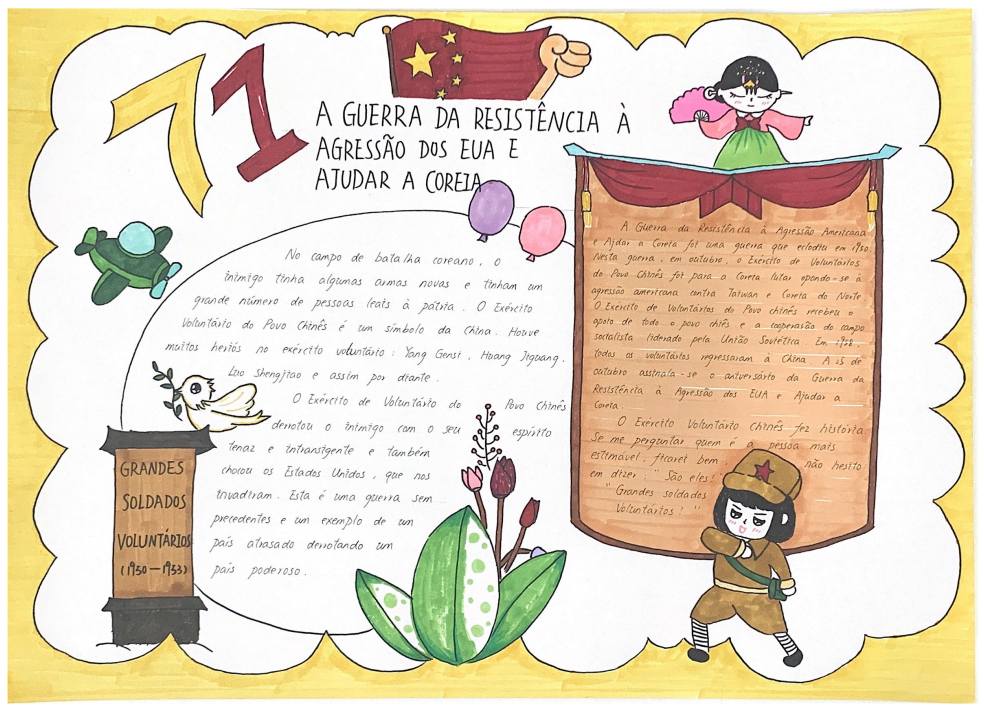 71
A GUERRA DA RESISTÊNCIA À
AGRESSÃO DOS EUA E
AJUDAR A COREIA
No campo de batalha coreano, o
inimigo tinha algumas armas novas e tinham um
grande número de pessoas leais à pátria. O Exército
Voluntário do Povo Chinês é um símbolo da China. Houve
muitos heriós no exército voluntário: Yang Gensi, Huang Jiguang,
Luo Shengjiao e assim por diante.
O Exército de Voluntário do Povo Chinês
derrotou o inimigo com o seu espírito
tenaz e intransigente e também
chocou os Estados Unidos, que nos
invadiram. Esta é uma guerra sem
precedentes e um exemplo de um
país atrasado derrotando um
país poderoso.
GRANDES
SOLDADOS
VOLUNTÁRIOS
(1950-1953)
A Guerra da Resistência à Agressão Americana
e Ajdar a Coreia foi uma guerra que eclodiu em 1950.
Nesta guerra, em outubro, o Exército de Voluntários
do Povo Chinês foi para a Coreia lutar opondo-se à
agressão americana contra Taiwan e Coreia do Norte.
O Exército de Voluntários do Povo chinês recebeu o
apoio de todo o povo chiês e a cooperasão do campo
socialista liderado pela União Soviética. Em 1958,
todos os voluntários regressaram à China. A 25 de
outubro assinala-se o aniversário da Guerra da
Resistência à Agressão dos EUA e Ajudar a
Coreia.
O Exército Voluntário Chinês fez história.
Se me perguntar quem é a pessoa mais
estimável, ficaret bem, não hesito
em dizer: "São eles!
"Grandes soldados
Voluntários!"